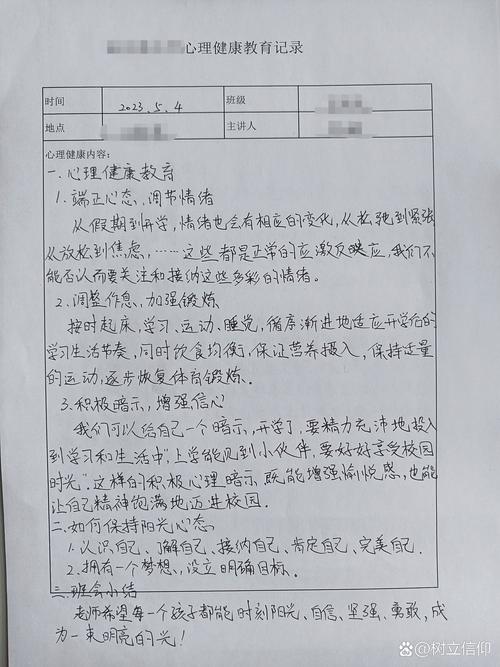 心理健康教育记录
时间 2023.5.4 班级
地点 主讲人
心理健康内容:
一.心理健康教育
1.端正心态、调节情绪
从假期到开学,情绪也会有相应的变化,从松弛到紧张
从放松到焦虑,……这些都是正常的应激反映应,我们不
能否认而要关注和接纳这些多彩的情绪。
2.调整作息、加强锻炼
按时起床、学习、运动、睡觉,循序渐进地适应开学后的
学习生活节奏,同时饮食均衡,保证营养摄入,保持适量
的运动,逐步恢复体育锻炼。
3.积极暗示,增强信心
我们可以给自己一个暗示,开学了,要精力充沛地投入
到学习和生活中"上学能见到小伙伴,要好好享受校园
时光"这样的积极心理暗示既能增强愉悦感,也能
让自己精神饱满地迈进校园.
二.如何保持阳光心态。
1.认识自己、了解自己、接纳自己、肯定自己、完美自己.
2.拥有一个梦想、设立明确目标。
三.班会小结
老师希望每一个孩子都能时刻阳光、自信、坚强、勇敢,成
为一束明亮的光!
@树立信仰